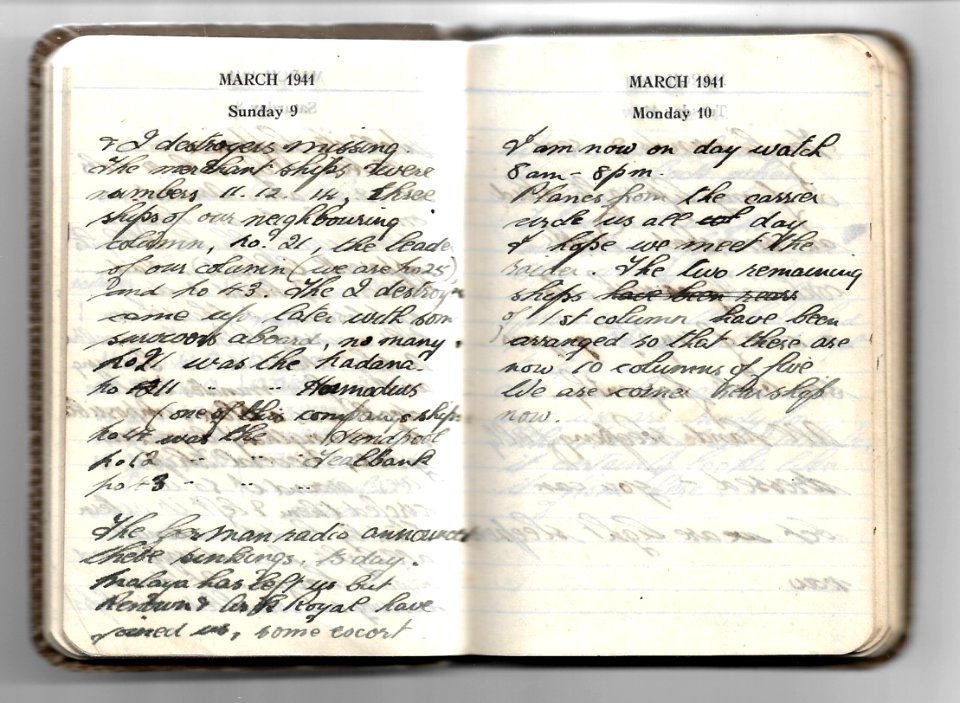 MARCH 1941
Sunday 9
& 2 destroyers missing.
The merchant ships were
numbers 11. 12. 14, three
ships of our neighbouring
column, no. 21, the leade
of our column (we are no 25)
and no 43. The 2 destroy
came up later with som
survivors aboard, no many
no 21 was the Nadana
no 11 " " Harmodius
(one of this companies ships
no 14 was the
no 12 " " " Tealbank
no 43 " " "
The German radio announced
these sinkings, today.
Malaya has left us but
Renown & Ark Royal have
joined us, some escort
MARCH 1941
Monday 10
I am now on day watch
8am - 8pm.
Planes from the carrier
circle us all day
I hope we meet the
raider. The two remaining
ships have been
of 1st column have been
arranged so that there are
now 10 columns of five
We are corner ship
now.